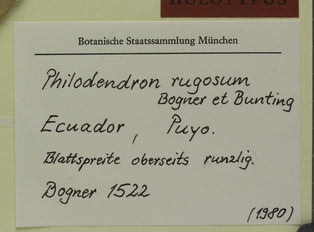 HOLOTYPUS
Botanische Staatssammlung München
Philodendron rugosum
Bogner et Bunting
Ecuador, Puyo.
Blattspreite oberseits runzlig.
Bogner 1522
(1980)